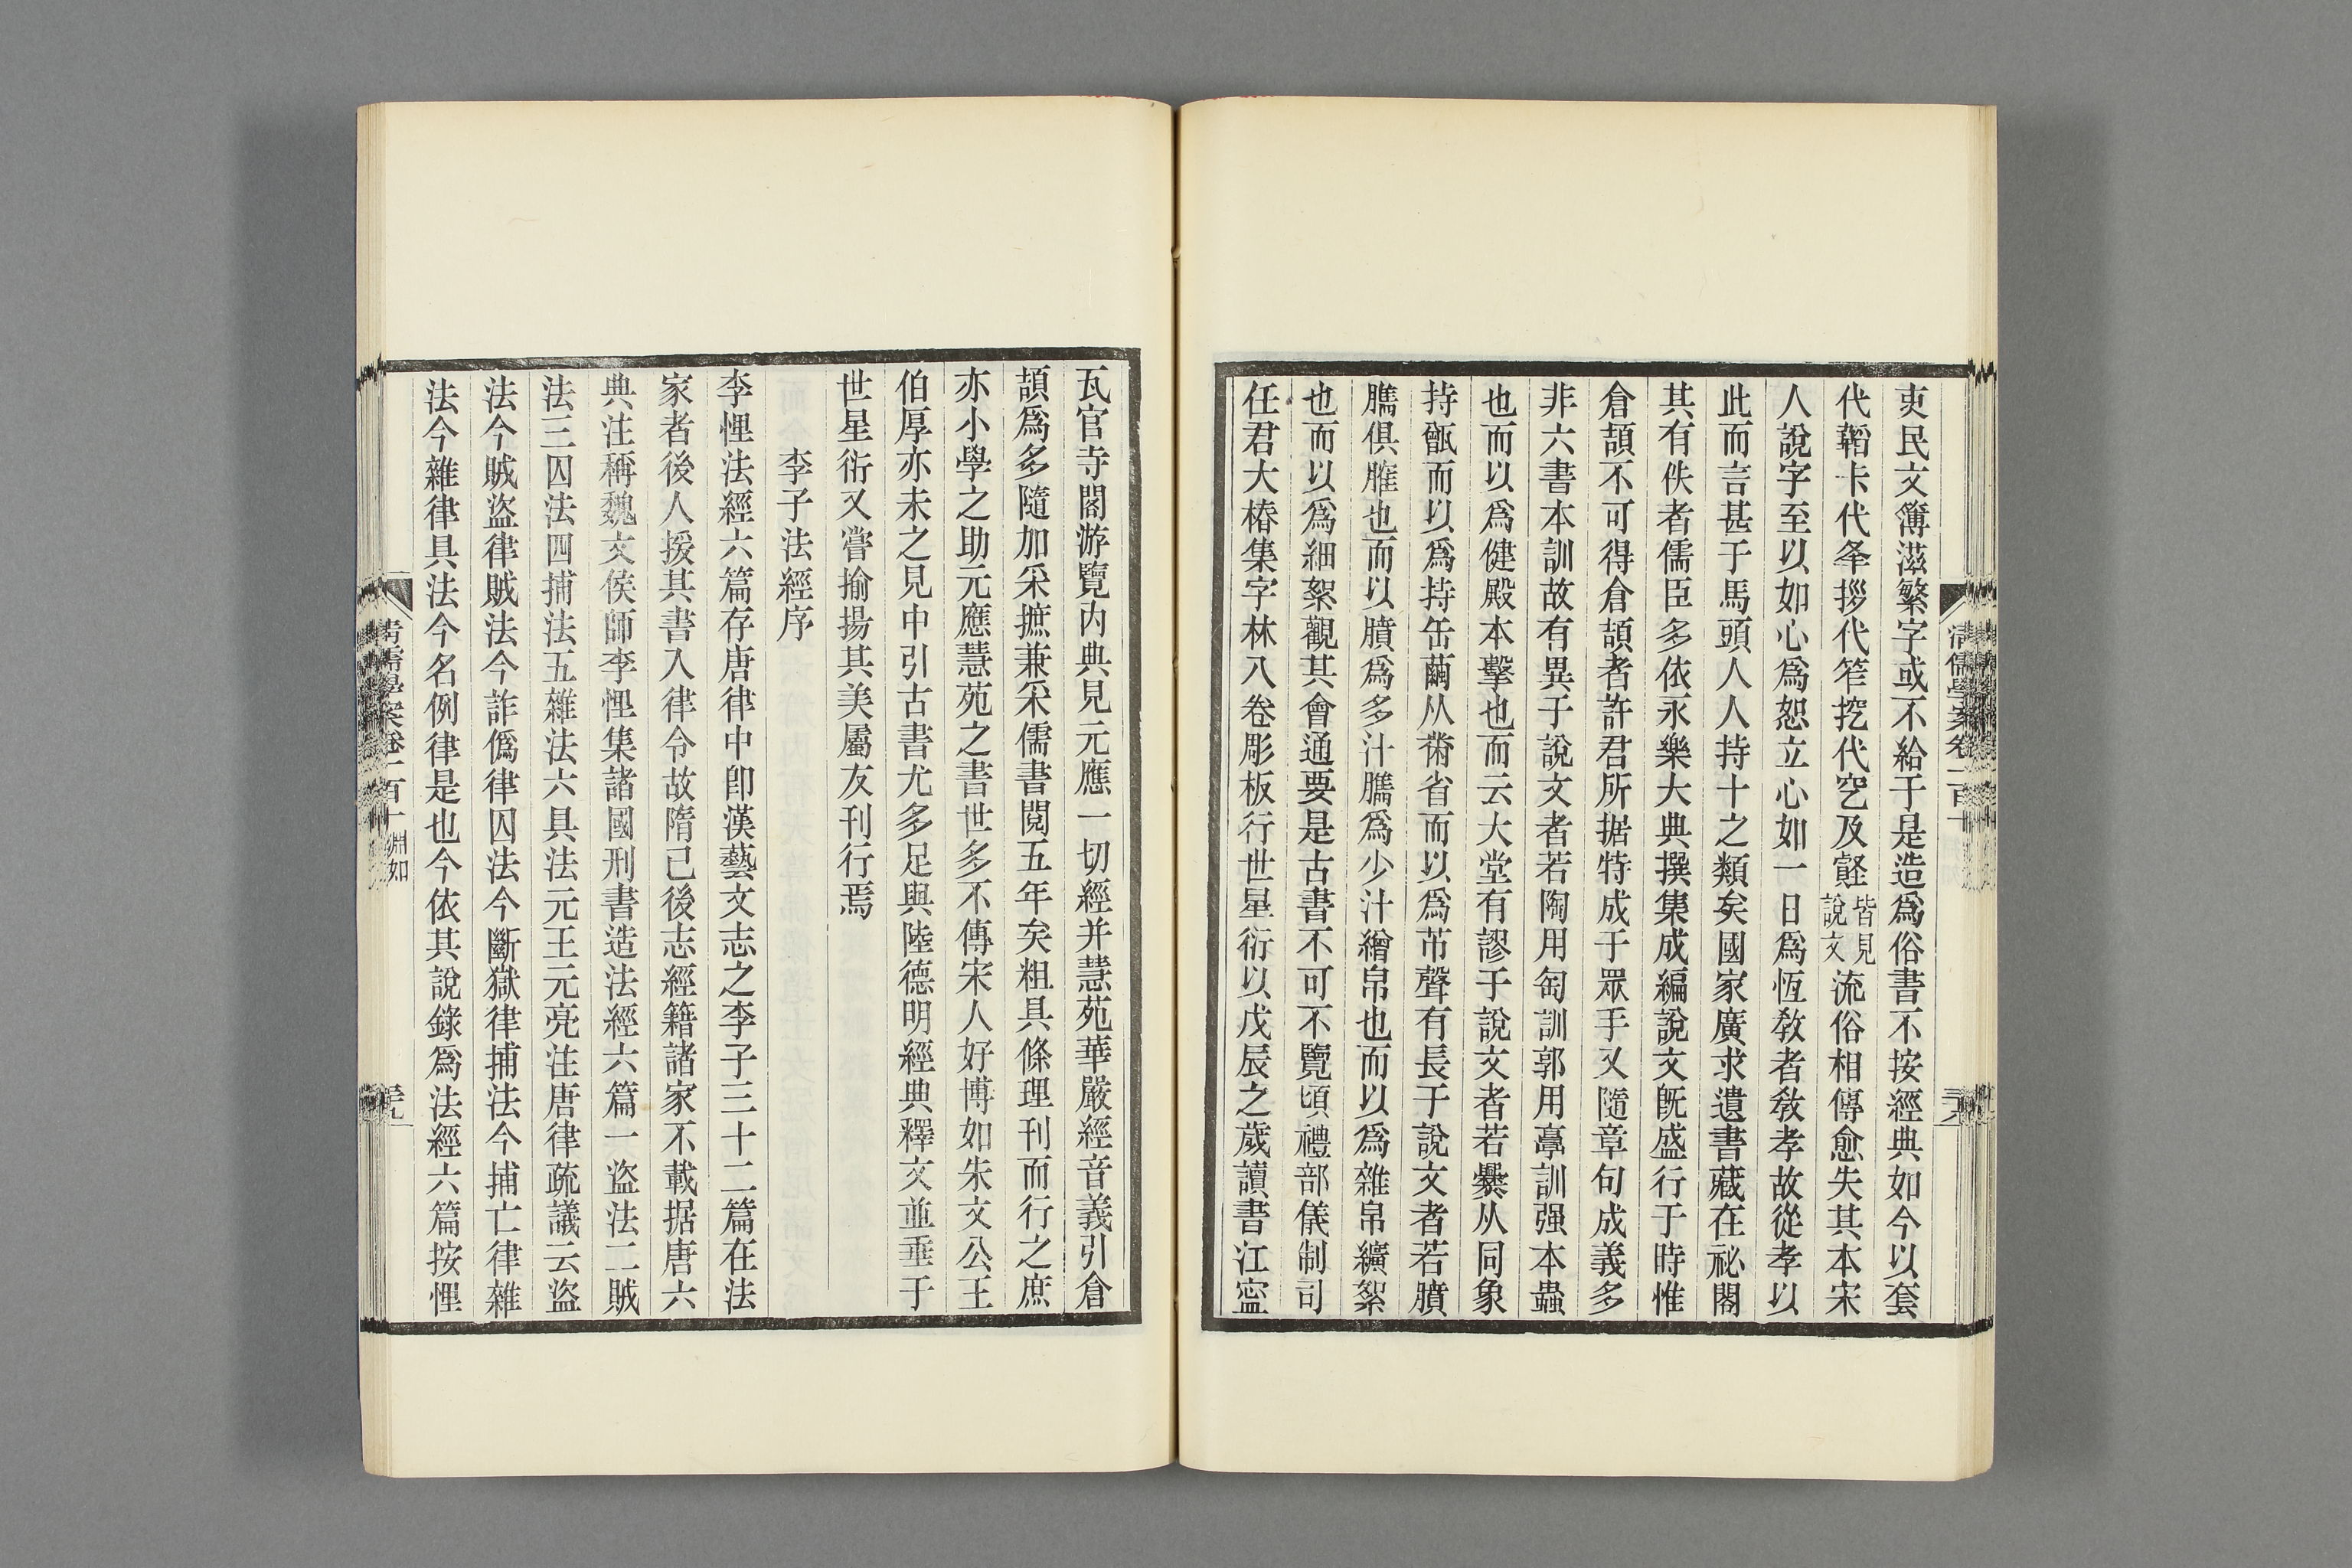 吏民文簿滋繁字或不給于是造爲俗書不按經典如今以套
代韜卡代夅拶代笮挖代空及寏皆見說文流俗相傳愈失其本宋
人說字至以如心爲恕立心如一日爲恆敎者敎孝故從孝以
此而言甚于馬頭人人持十之類矣國家廣求遺書藏在祕閣
其有佚者儒臣多依永樂大典撰集成編說文旣盛行于時惟
倉頡不可得倉頡者許君所据特成于眾手又隨章句成義多
非六書本訓故有異于說文者若陶用匋訓郭用𩫏訓强本蟲
也而以爲健殿本擊也而云大堂有謬于說文者若爨从同象
持甑而以爲持缶繭从芾省而以爲芇聲有長于說文者若膹
臇俱臛也而以膹爲多汁臇爲少汁繒帛也而以爲雜帛纊絮
也而以爲細絮觀其會通要是古書不可不覽頃禮部儀制司
任君大椿集字林八卷彫板行世星衍以戊辰之歲讀書江寧
清儒學案卷一百十
瓦官寺閣游覽內典見元應一切經并慧苑華嚴經音義引倉
頡爲多隨加采摭兼采儒書閱五年矣粗具條理刊而行之庶
亦小學之助元應慧苑之書世多不傳宋人好博如朱文公王
伯厚亦未之見中引古書尤多足與陸德明經典釋文並垂于
世星衍又嘗揄揚其美屬友刊行焉
李子法經序
李悝法經六篇存唐律中卽漢藝文志之李子三十二篇在法
家者後人援其書入律令故隋已後志經籍諸家不載据唐六
典注稱魏文侯師李悝集諸國刑書造法經六篇一盜法二賊
法三囚法四捕法五雜法六具法元王元亮注唐律疏議云盜
法今賊盜律賊法今詐僞律囚法今斷獄律捕法今捕亡律雜
法今雜律具法今名例律是也今依其說錄爲法經六篇按悝
清儒學案卷一百十 淵如 三九